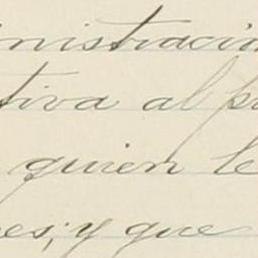 inistracio
tiva al p
quien le
es; y que